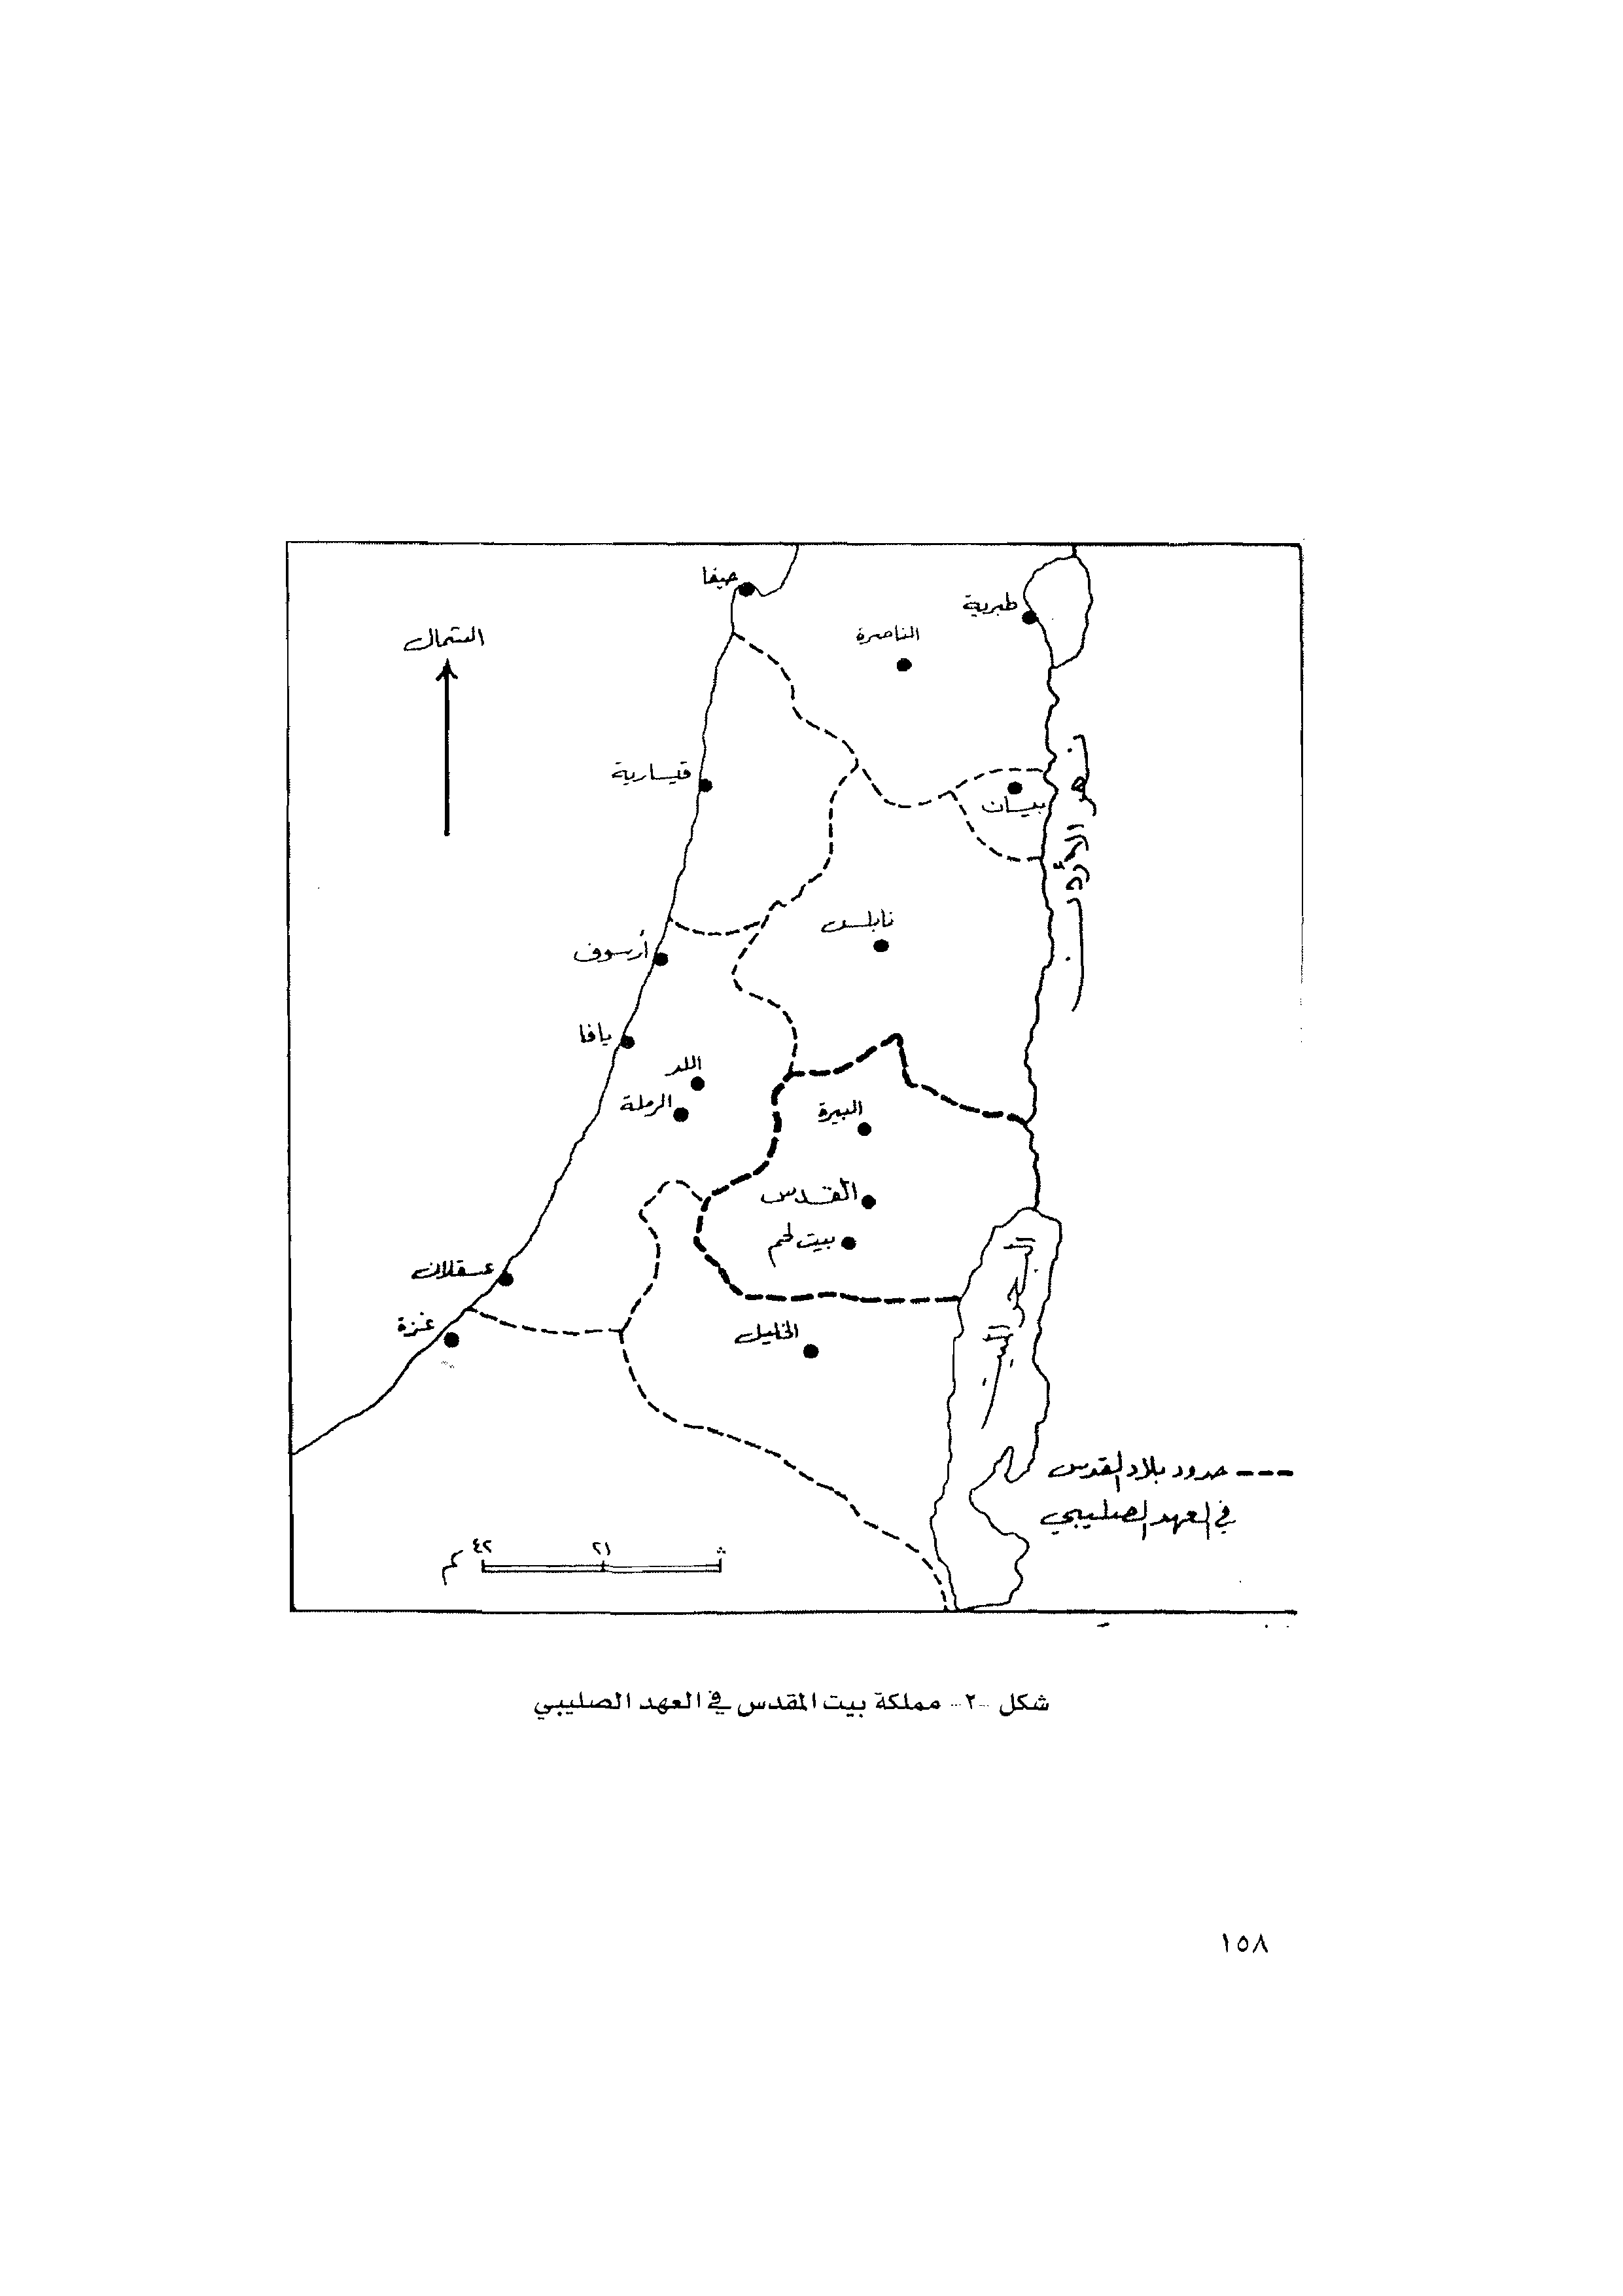 حيفا
طبرية
الناصرة
الشمال
قيسارية
بيسان
نهر الأردن
نابلس
أرسوف
يافا
اللد
الرملة
البيرة
القدس
بيت لحم
عسقلان
غزة
الخليل
البحر الميت
--- حدود بلاد القدس
في العهد الصليبي
٤٢ ٢١ كم
شكل -٢- مملكة بيت المقدس في العهد الصليبي
١٥٨